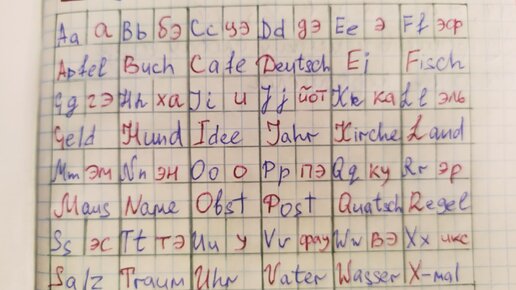 Aa а Bb бэ Cc цэ Dd дэ Ee э Ff эф
Apfel Buch Cafe Deutsch Ei Fisch
Gg гэ Hh ха Ii и Jj йот Kk ка Ll эль
Geld Hund Idee Jahr Kirche Land
Mm эм Nn эн Oo о Pp пэ Qq ку Rr эр
Maus Name Obst Post Quatsch Regel
Ss эс Tt тэ Uu у Vv фау Ww вэ Xx икс
Salz Traum Uhr Vater Wasser X-mal